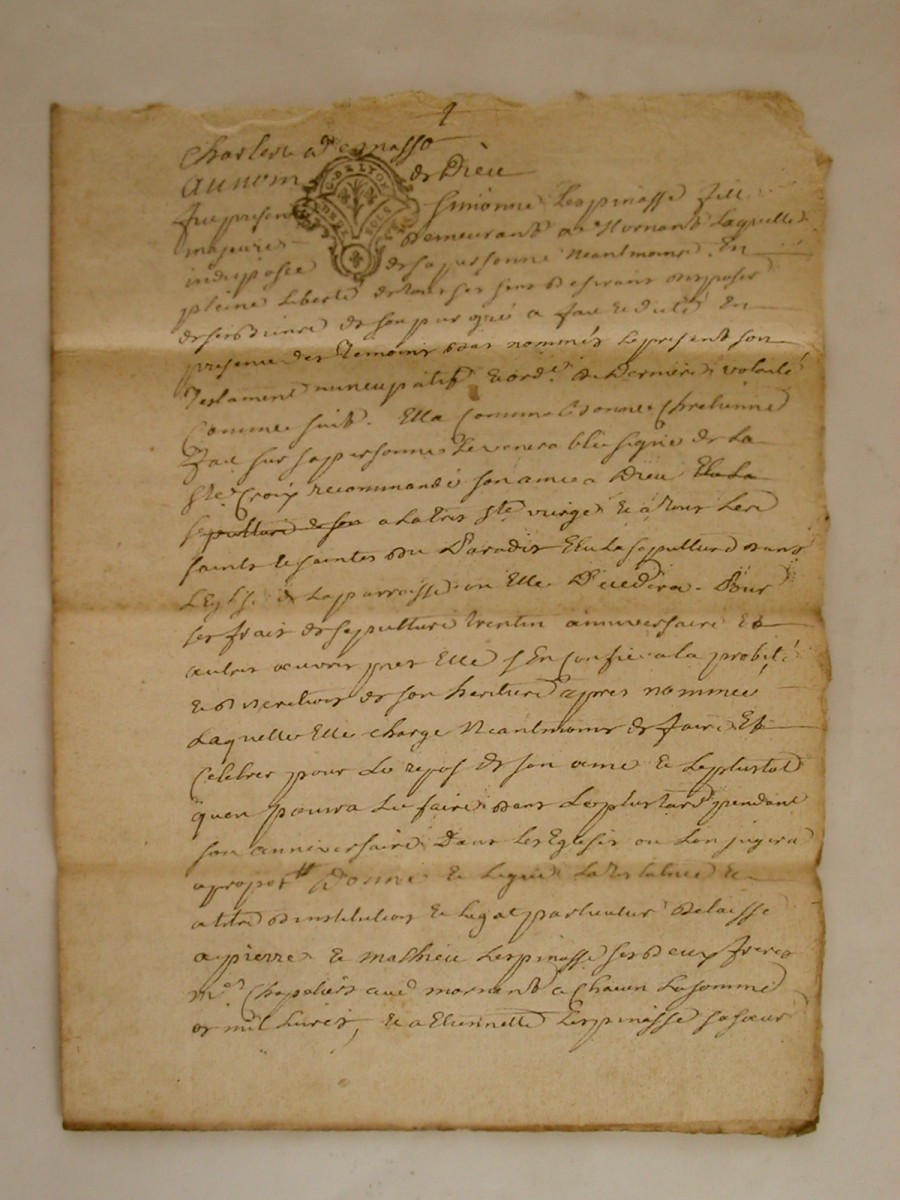 1
au nom de Dieu
G. DE LYON
DEUX SOLS
fut presente Simonne Lespinasse fille
majeure demeurant a Mornant Laquelle
indisposée de sa personne Neantmoins En
pleine Liberté de tous ses sens desirant disposer
de ses biens de son pur gré a fait Et dicté En
presence des Temoins bas nommés Le present son
Testament nuncupatif Et ord.e de Derniere volonté
Comme suit. Ella Comme bonne Chretienne
fait sur sa personne Le venerable signe de La
Ste Croix recommandé son ame a Dieu Et La
sepulture de son a La tres Ste vierge Et a tous Les
saints Et saintes du Paradis Elu La sepulture dans
L'Eglise de La parroisse ou Elle Decedera. Pour
ses frais de sepulture trentin anniversaire Et
autres œuvres pies Elle s'En Confie a La probité
Et discretion de son heritiere apres nommée
Laquelle Elle charge Neantmoins de faire Et
Celebrer pour Le repos de son ame Et Le plustot
qu'en pourra Le faire dans Le plus tard pendant
son anniversaire Dans Les Eglises ou L'on jugera
apropos Donne Et Legue La Testatrice Et
a titre d'institution Et Legat particulier delaisse
a pierre Et mathieu Lespinasse ses deux freres
m.es Chapeliers aud mornant a Chacun La somme
de mil Livres, Et a Etiennette Lespinasse sa sœur